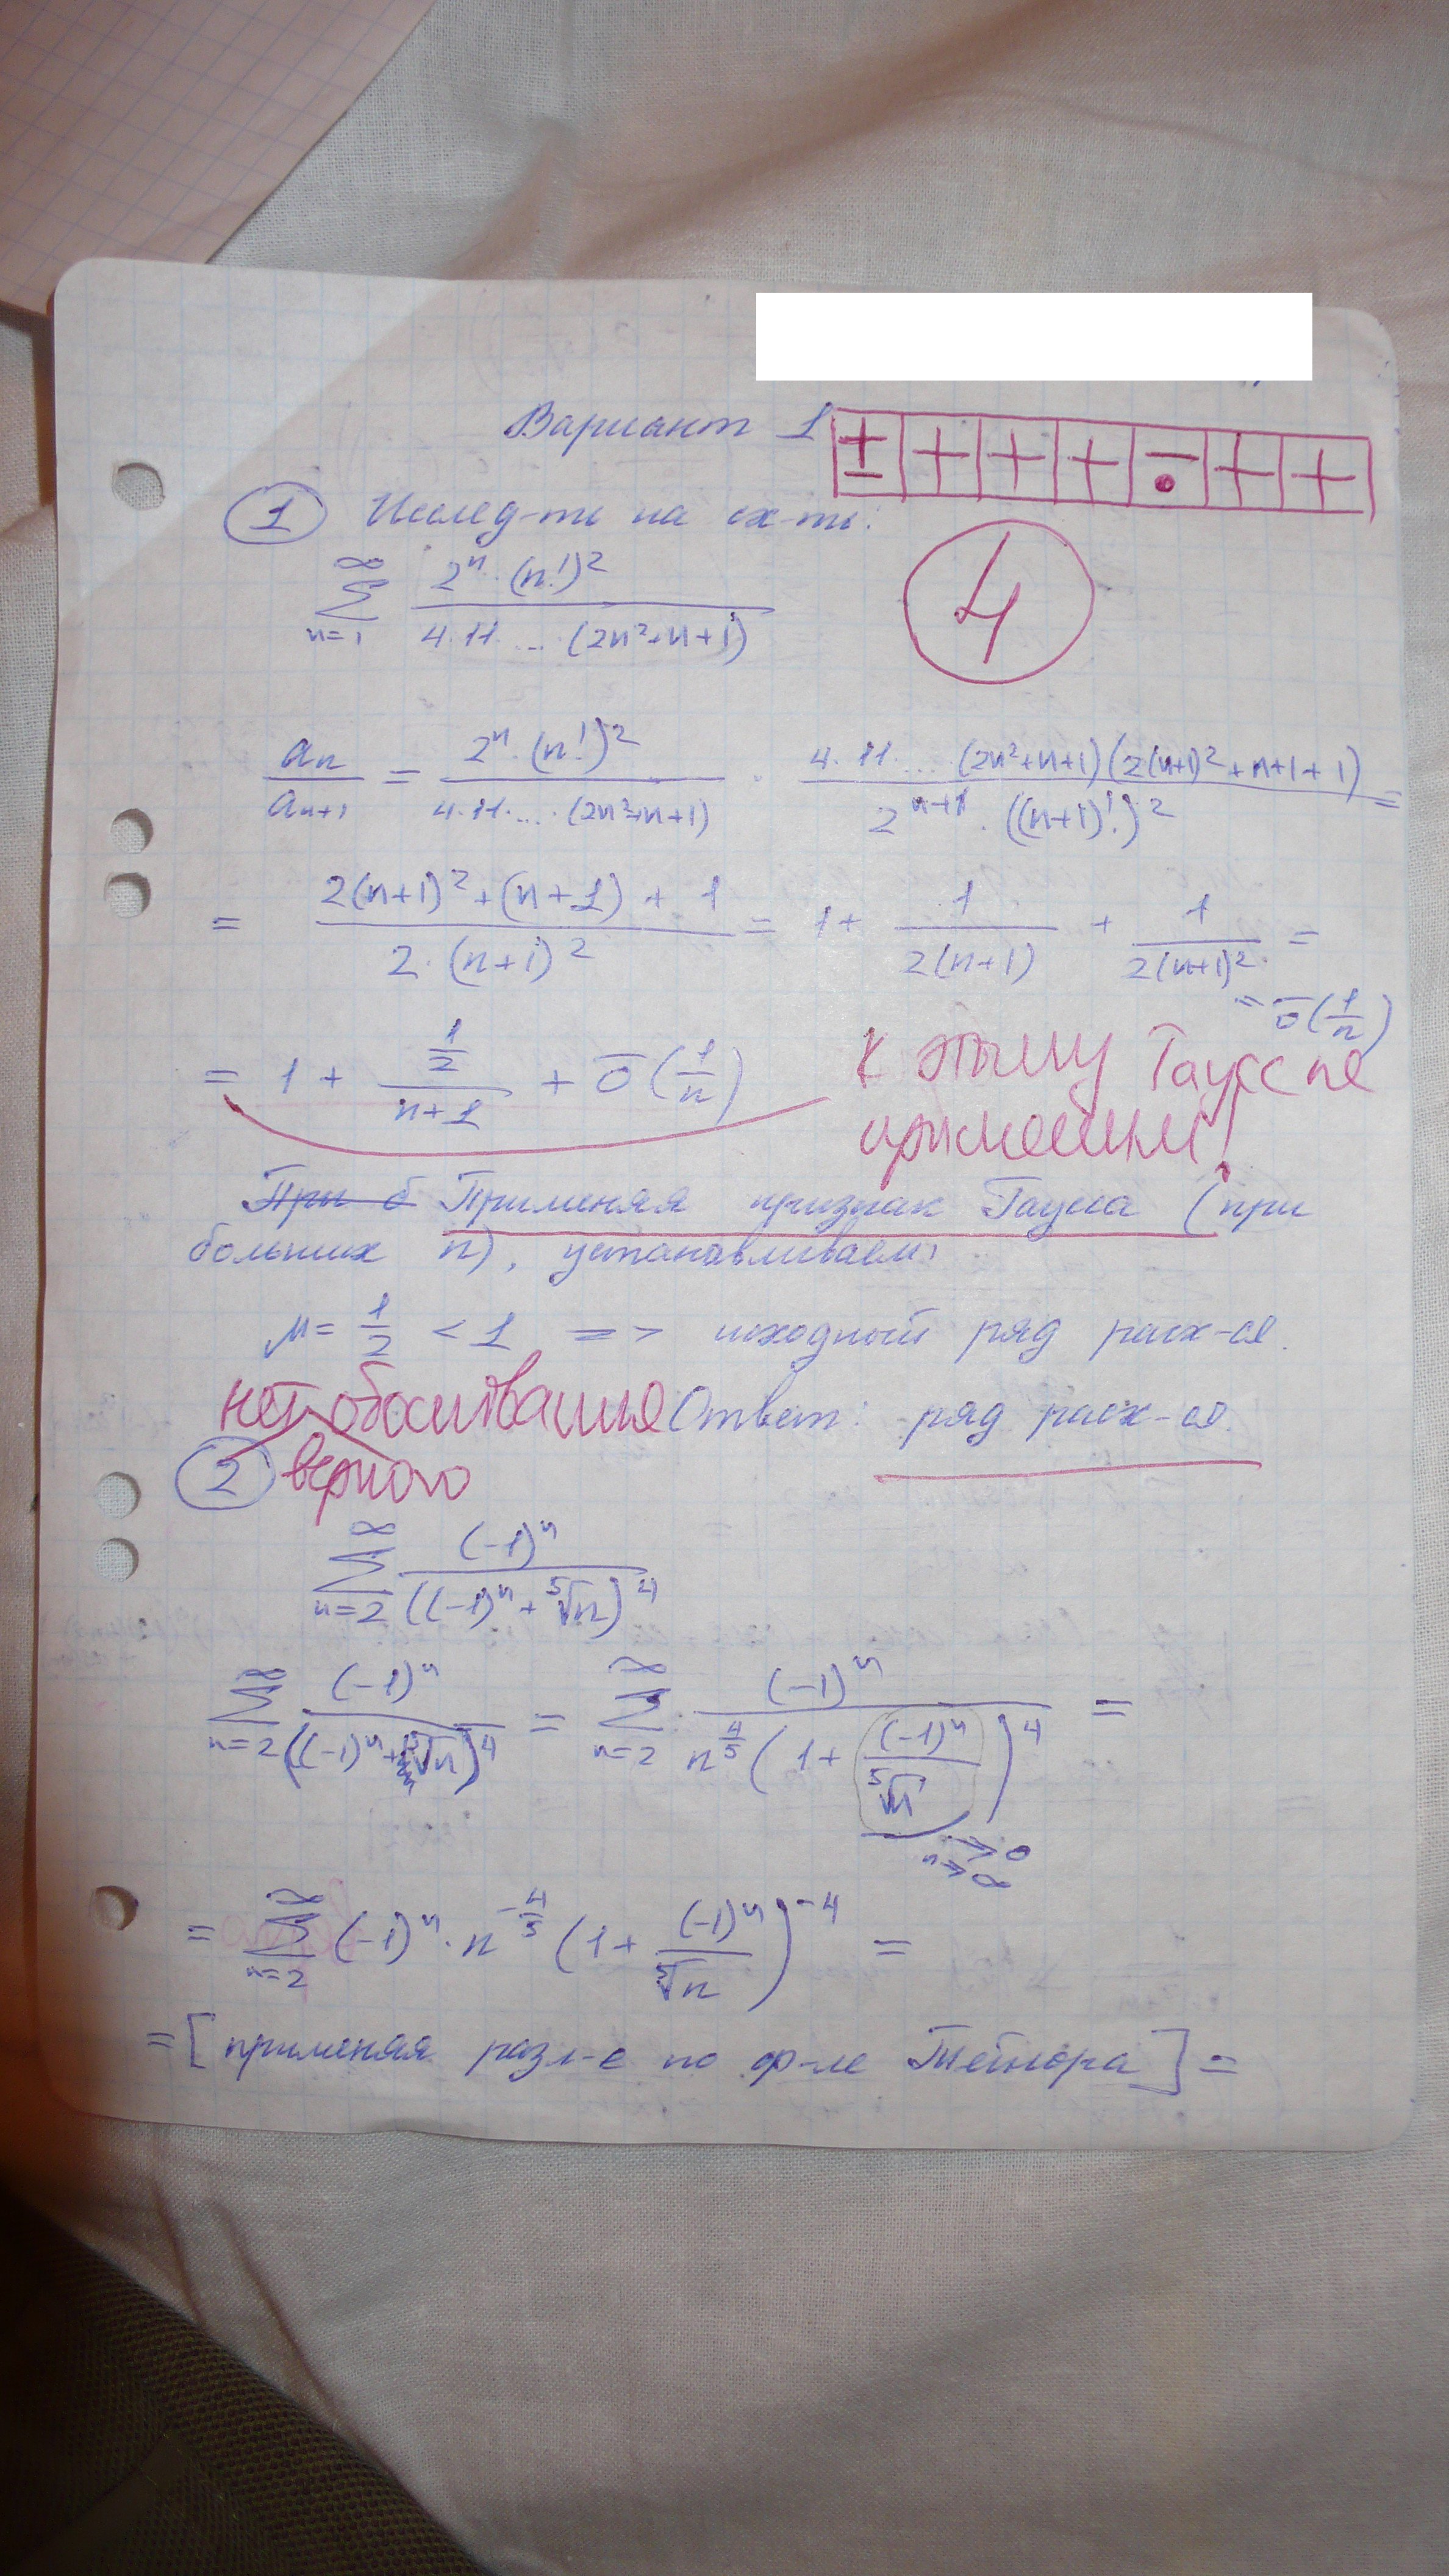 Вариант 1
± + + + ∸ + +
① Исслед-ть на сх-ть:
4
∑_{n=1}^{∞} \frac{2^n·(n!)^2}{4·11·...(2n^2+n+1)}
\frac{a_n}{a_{n+1}} = \frac{2^n·(n!)^2}{4·11·...·(2n^2+n+1)} · \frac{4·11·...(2n^2+n+1)(2(n+1)^2+n+1+1)}{2^{n+1}·((n+1)!)^2} =
= \frac{2(n+1)^2+(n+1)+1}{2·(n+1)^2} = 1+ \frac{1}{2(n+1)} + \frac{1}{2(n+1)^2} =
= \overline{o}(\frac{1}{n})
= 1 + \frac{\frac{1}{2}}{n+1} + \overline{o}(\frac{1}{n})
К этому Гаусс не
применим!
При б Применяя признак Гаусса (при
больших n), устанавливаем,
μ = \frac{1}{2} < 1 => исходный ряд расх-ся.
нет обоснования
Ответ: ряд расх-ся.
верного
②
∑_{n=2}^{∞} \frac{(-1)^n}{((-1)^n+\sqrt[5]{n})^4}
∑_{n=2}^{∞} \frac{(-1)^n}{((-1)^n+\sqrt[5]{n})^4} = ∑_{n=2}^{∞} \frac{(-1)^n}{n^{\frac{4}{5}}(1+\frac{(-1)^n}{\sqrt[5]{n}})^4} =
→ 0
n→∞
= ∑_{n=2}^{∞} (-1)^n·n^{-\frac{4}{5}}(1+\frac{(-1)^n}{\sqrt[5]{n}})^{-4} =
= [применяя разл-е по ф-ле Тейлора] =